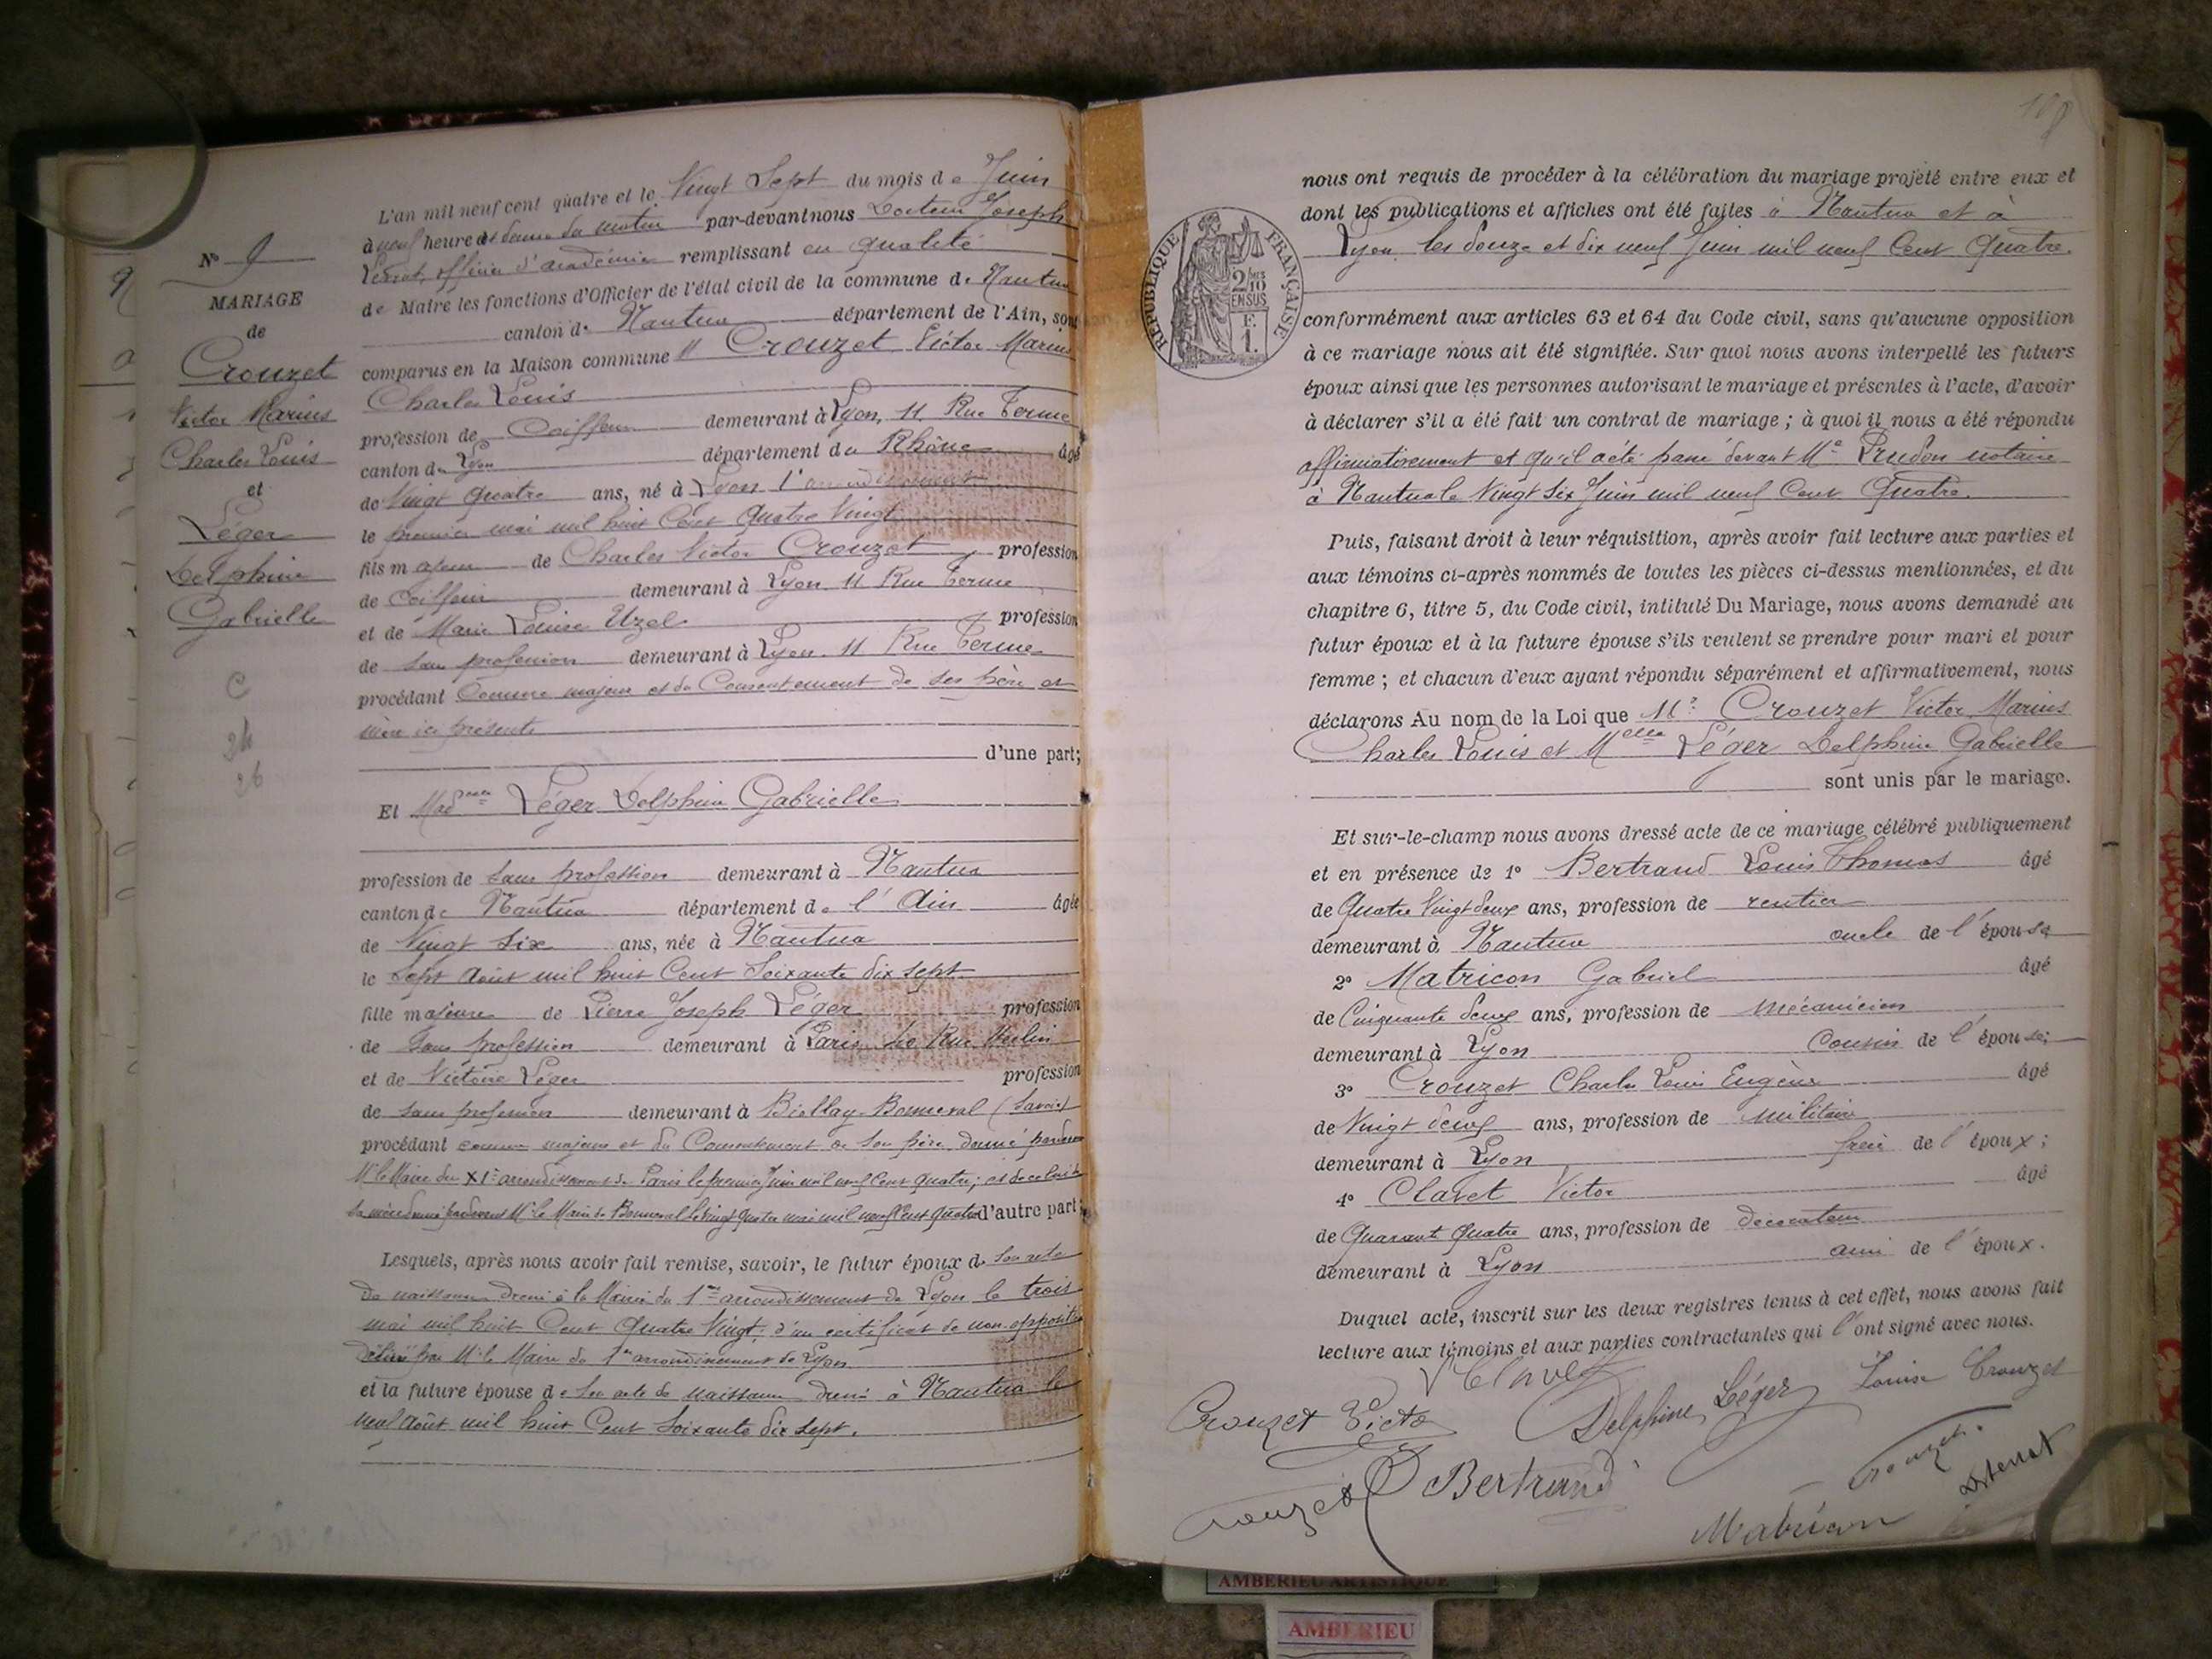 N° 9
MARIAGE
de
Crouzet
Victor Marius
Charles Louis
et
Léger
Delphine
Gabrielle
C
24
26
L'an mil neuf cent quatre et le Vingt Sept du mois de Juin
à neuf heures du matin par-devant nous Docteur Joseph
officier d'académie remplissant en qualité
de Maire les fonctions d'Officier de l'état civil de la commune de Nantua
canton de Nantua département de l'Ain, sont
comparus en la Maison commune Mr Crouzet Victor Marius
Charles Louis
profession de Coiffeur demeurant à Lyon, 11 Rue Terme
canton de Lyon département du Rhône âgé
de Vingt quatre ans, né à Lyon 1er arrondissement
le premier mai mil huit Cent Quatre Vingt
fils majeur de Charles Victor Crouzet profession
de Coiffeur demeurant à Lyon 11 Rue Terme
et de Marie Louise Uzel profession
de sans profession demeurant à Lyon. 11 Rue Terme
procédant Comme majeur et du Consentement de ses père et
mère ici présents
d'une part;
Et Madelle Léger Delphine Gabrielle
profession de sans profession demeurant à Nantua
canton de Nantua département de l'Ain âgée
de Vingt six ans, née à Nantua
le Sept Août mil huit Cent Soixante dix sept
fille majeure de Pierre Joseph Léger profession
de Sans profession demeurant à Paris, Rue Merlin
et de Victoire Léger profession
de sans profession demeurant à Biollay-Bonneval (Savoie)
procédant comme majeure et du Consentement de son père donné pardevant
Mr le Maire du XIe arrondissement de Paris le premier Juin mil neuf Cent quatre; et de celui de
sa mère donné pardevant Mr le Maire de Bonneval le vingt quatre mai mil neuf Cent Quatre d'autre part;
Lesquels, après nous avoir fait remise, savoir, le futur époux de Son acte
de naissance dressé à la Mairie du 1er arrondissement de Lyon le trois
mai mil huit Cent Quatre Vingt; d'un certificat de non opposition
Délivré par Mr le Maire du 1er arrondissement de Lyon
et la future épouse de Son acte de naissance dressé à Nantua le
neuf Août mil huit Cent Soixante dix sept.
REPUBLIQUE FRANÇAISE
2/10
EN SUS
F.
1.
nous ont requis de procéder à la célébration du mariage projeté entre eux et
dont les publications et affiches ont été faites à Nantua et à
Lyon les douze et dix neuf Juin mil neuf Cent Quatre.
conformément aux articles 63 et 64 du Code civil, sans qu'aucune opposition
à ce mariage nous ait été signifiée. Sur quoi nous avons interpellé les futurs
époux ainsi que les personnes autorisant le mariage et présentes à l'acte, d'avoir
à déclarer s'il a été fait un contrat de mariage; à quoi il nous a été répondu
affirmativement et qu'il a été passé devant Me Prudon notaire
à Nantua le Vingt Six Juin mil neuf Cent Quatre.
Puis, faisant droit à leur réquisition, après avoir fait lecture aux parties et
aux témoins ci-après nommés de toutes les pièces ci-dessus mentionnées, et du
chapitre 6, titre 5, du Code civil, intitulé Du Mariage, nous avons demandé au
futur époux et à la future épouse s'ils veulent se prendre pour mari et pour
femme; et chacun d'eux ayant répondu séparément et affirmativement, nous
déclarons Au nom de la Loi que Mr Crouzet Victor Marius
Charles Louis et Melle Léger Delphine Gabrielle
sont unis par le mariage.
Et sur-le-champ nous avons dressé acte de ce mariage célébré publiquement
et en présence de 1° Bertrand Louis Thomas âgé
de Quatre Vingt deux ans, profession de rentier
demeurant à Nantua oncle de l'épouse
2° Matricon Gabriel âgé
de Cinquante deux ans, profession de mécanicien
demeurant à Lyon Cousin de l'épouse;
3° Crouzet Charles Louis Eugène âgé
de Vingt deux ans, profession de militaire
demeurant à Lyon frère de l'époux;
4° Claret Victor âgé
de Quarante Quatre ans, profession de décorateur
demeurant à Lyon ami de l'époux.
Duquel acte, inscrit sur les deux registres tenus à cet effet, nous avons fait
lecture aux témoins et aux parties contractantes qui l'ont signé avec nous.
Crouzet Victor
Delphine Léger
Louise Crouzet
Crouzet
Bertrand
Crouzet
Matricon
AMBERIEU ARTISTIQUE
AMBERIEU